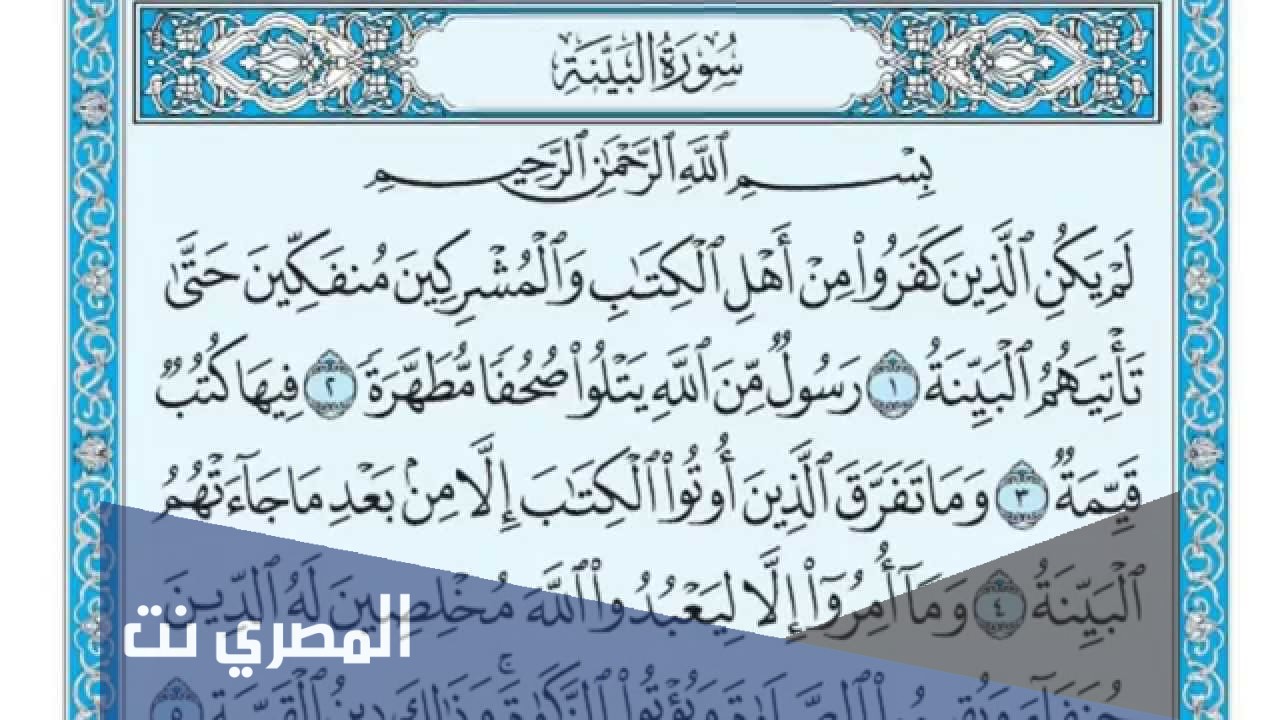 سُورَةُ البَيِّنَةِ
بِسْمِ ٱللَّهِ ٱلرَّحْمَٰنِ ٱلرَّحِيمِ
لَمْ يَكُنِ ٱلَّذِينَ كَفَرُوا۟ مِنْ أَهْلِ ٱلْكِتَٰبِ وَٱلْمُشْرِكِينَ مُنفَكِّينَ حَتَّىٰ
تَأْتِيَهُمُ ٱلْبَيِّنَةُ ١ رَسُولٌ مِّنَ ٱللَّهِ يَتْلُوا۟ صُحُفًا مُّطَهَّرَةً ٢ فِيهَا كُتُبٌ
قَيِّمَةٌ ٣ وَمَا تَفَرَّقَ ٱلَّذِينَ أُوتُوا۟ ٱلْكِتَٰبَ إِلَّا مِنۢ بَعْدِ مَا جَآءَتْهُمُ
ٱلْبَيِّنَةُ ٤ وَمَآ أُمِرُوٓا۟ إِلَّا لِيَعْبُدُوا۟ ٱللَّهَ مُخْلِصِينَ لَهُ ٱلدِّينَ
المصري نت
حُنَفَآءَ وَيُقِيمُوا۟ ٱلصَّلَوٰةَ وَيُؤْتُوا۟ ٱلزَّكَوٰةَ ۚ وَذَٰلِكَ دِينُ ٱلْقَيِّمَةِ ٥